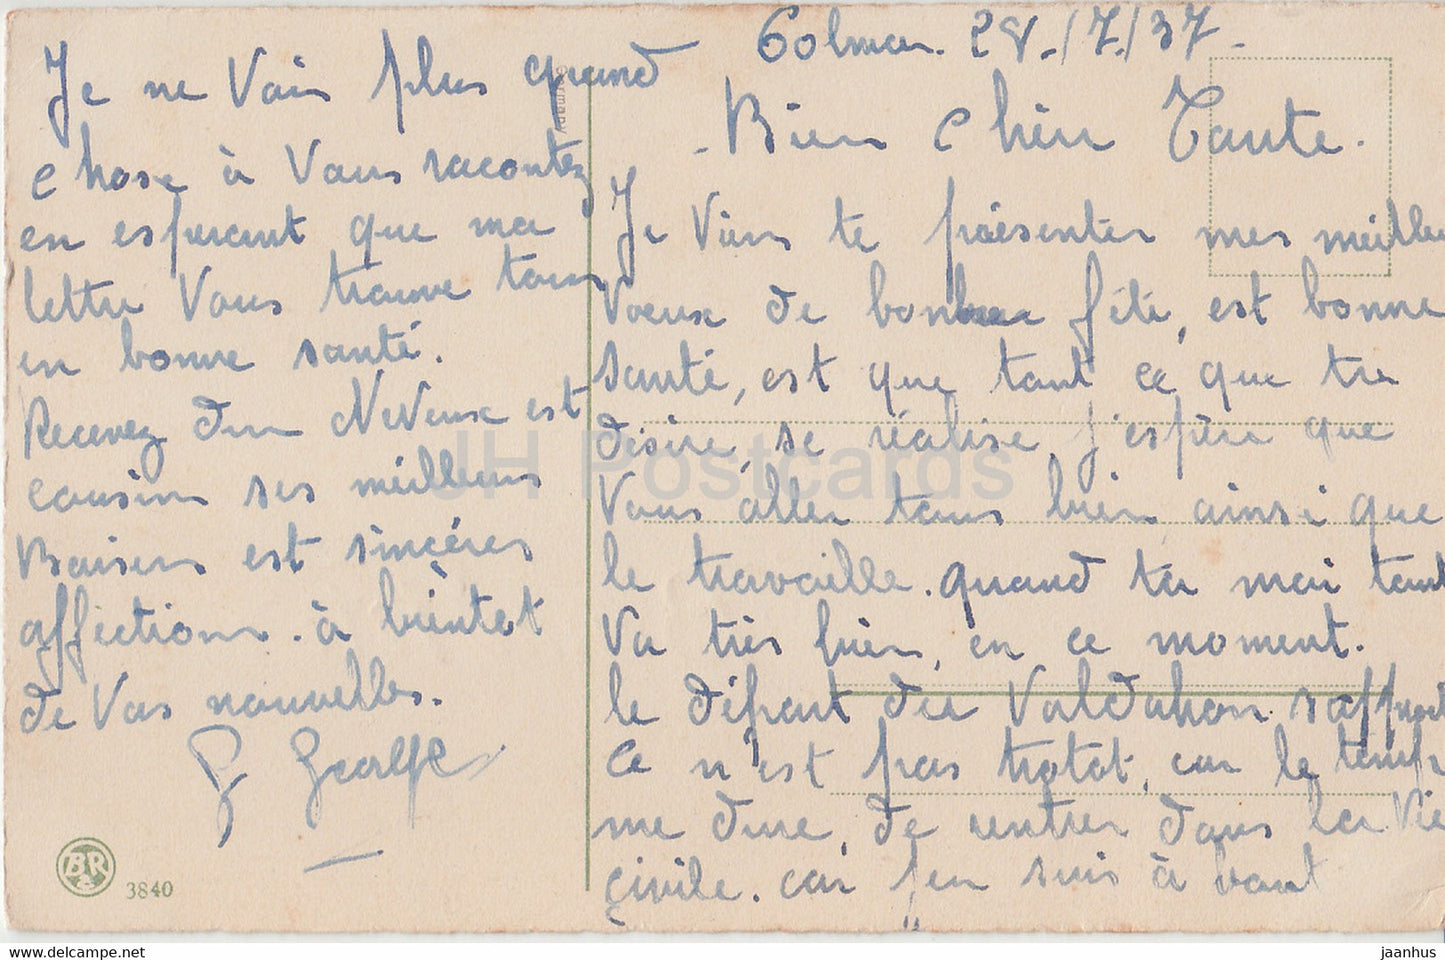 Colmar. 28./7./37.
Bien Chèr Tante.
Je Vien te présenter mes meilleu
Voeux de bonne fété, est bonne
santé, est que tant ce que tu
désire, se réalise j'espère que
Vous aller tous bien ainsi que
le travaille. quand ta moi tant
Va très bien, en ce moment.
le départ du Valdahon
Ce n'est pas trotot, car le temp
me dure, de rentrer dans la Vie
çivile. car j'en suis à bout
Je ne Vais plus quand
chose à Vous racontez
en esperant que ma
lettre Vous trouve tous
en bonne santé.
Recevez d'un NeVeux est
cousin ses meilleurs
Baisers est sincéres
afféctions. à bientot
de Vos nouvelles.
Germany
BR
3840
JH Postcards
https://jhpostcards.com
jaanhus